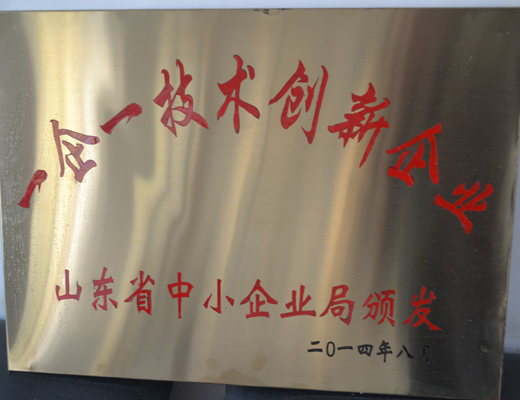 一企一技术创新企业
山东省中小企业局颁发
二〇一四年八月